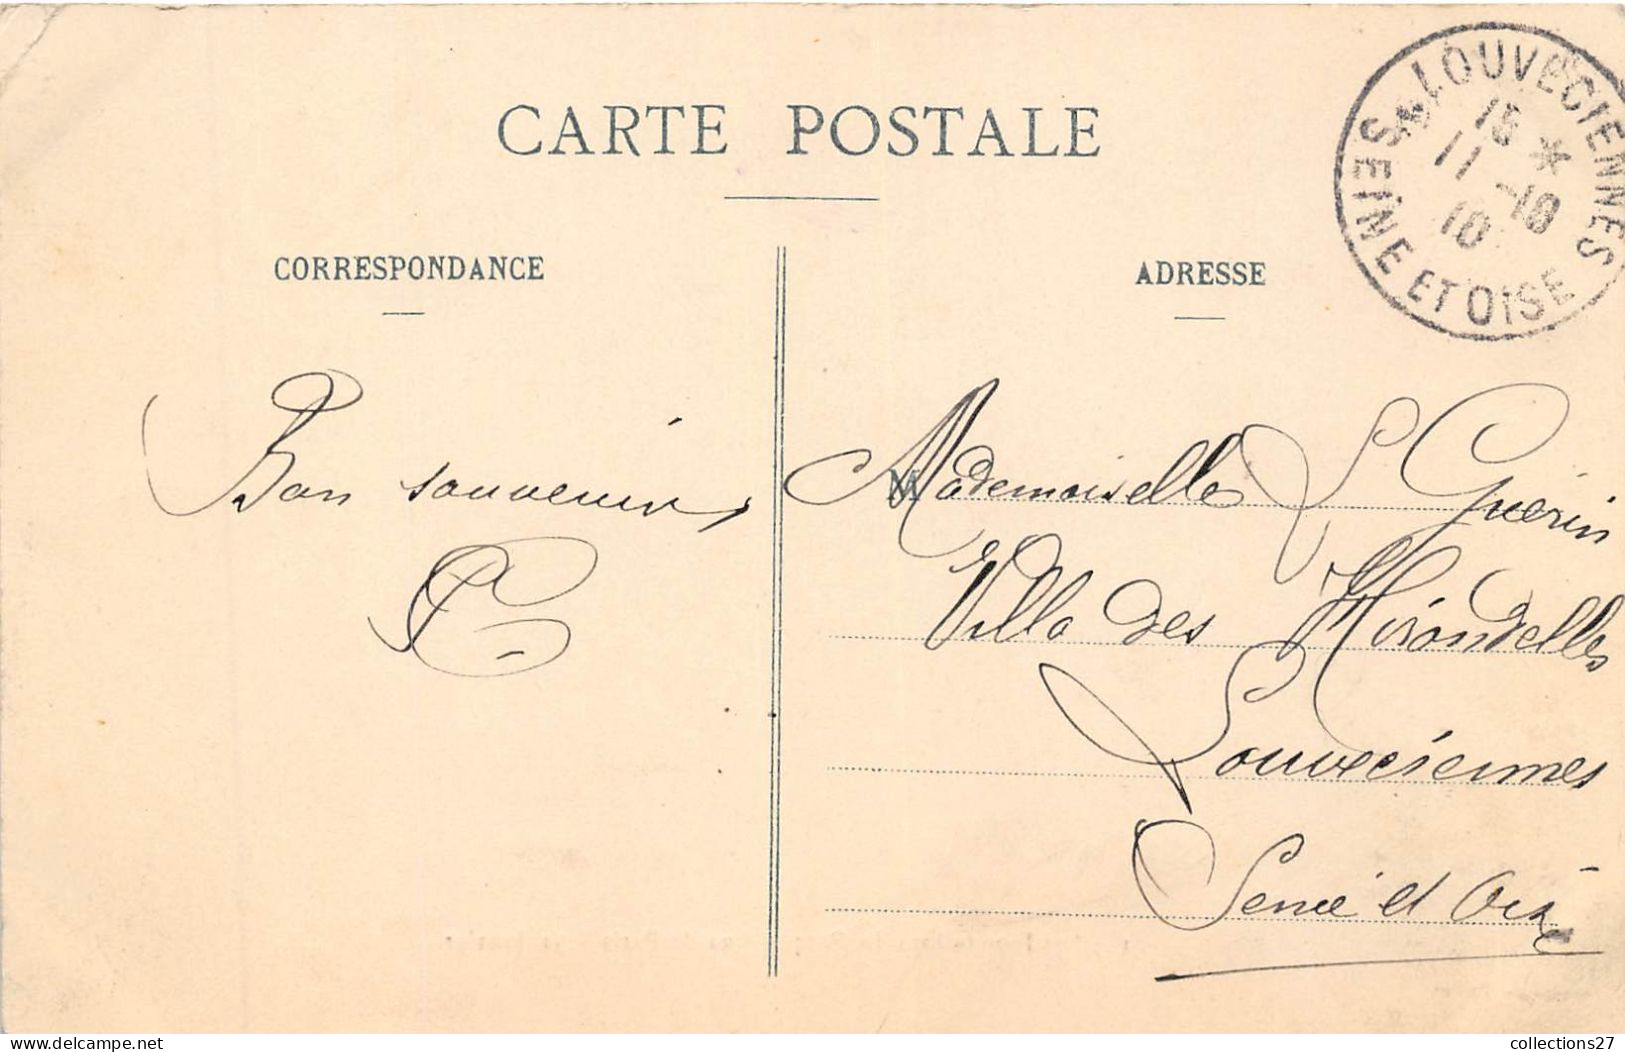 CARTE POSTALE
CORRESPONDANCE
ADRESSE
LOUVECIENNES
15 *
11 -10
10
SEINE ET OISE
Bon souvenir
M
Mademoiselle S Guérin
Villa des Hirondelles
Louveciennes
Seine et Oise
delcampe.net
collections27